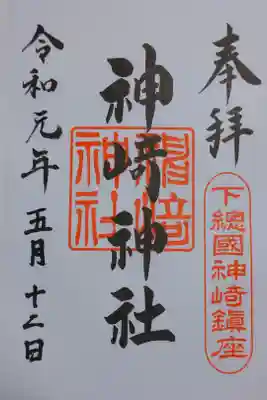 奉拝
下總國神崎鎭座
神崎神社
神崎
神社
令和元年五月十二日